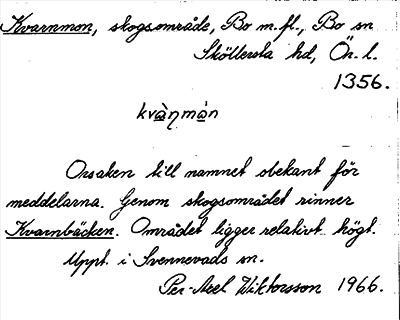 Kvarnmon, skogsområde, Bo m.fl., Bo sn
Sköllersta hd, Ön. l.
1356.
kvànmán
Orsaken till namnet obekant för
meddelarna. Genom skogsområdet rinner
Kvarnbäcken. Området ligger relativt högt.
Uppt. i Svennevads sn.
Per-Axel Wiktorsson 1966.